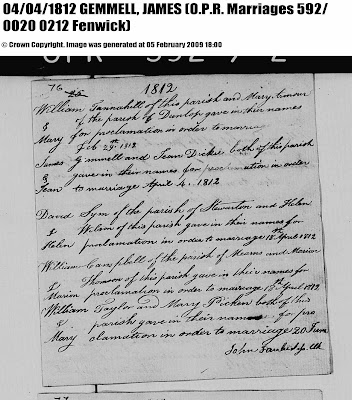 04/04/1812 GEMMELL, JAMES (O.P.R. Marriages 592/
0020 0212 Fenwick)
© Crown Copyright. Image was generated at 05 February 2009 18:00
76 1812
William Tannahill of this parish and Mary
& of the parish of Dunlop gave in their names
Mary for proclamation in order to marriage
Feb 29th 1812
James Gemmell and Jean Dickie both of this parish
& gave in their names for proclamation in order
Jean to marriage April 4. 1812
David Sym of the parish of Stewarton and Helen
& of this parish gave in their names for
Helen proclamation in order to marriage 18th April 1812
William Campbell of the parish of Mearns and Marion
& Thomson of this parish gave in their names for
Marion proclamation in order to marriage 18th April 1812
William Taylor and Mary Picken both of this
& parish gave in their names for pro
Mary clamation in order to marriage 20 June
John
77